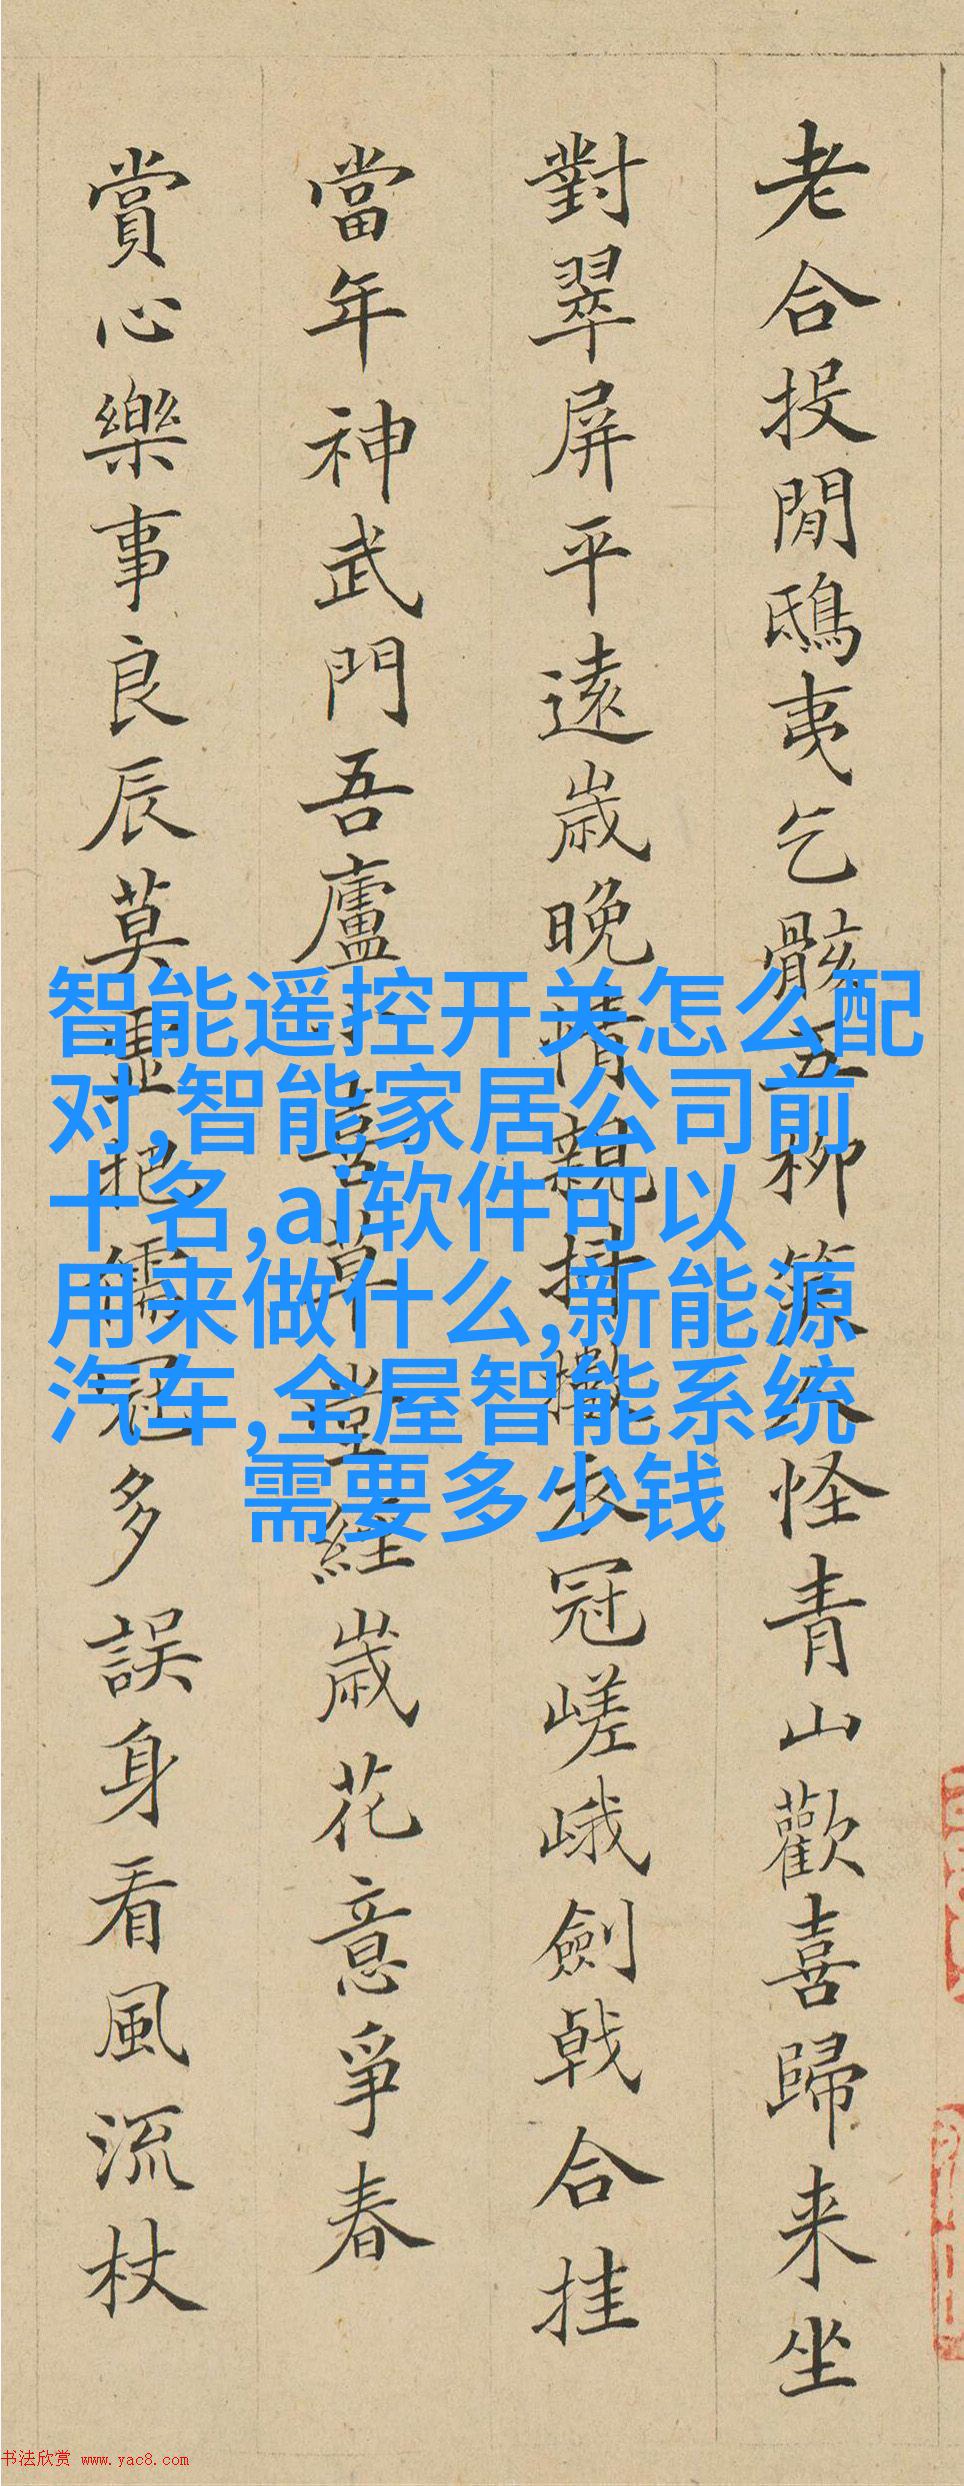 老合投閒鴟夷乞骸五柳怪青山歡喜歸来坐
對翠屏平遠歲晚情親冠嵯峨劍戟合挂
當年神武門吾廬喜草堂經歲花意爭春
賞心樂事良辰莫虛把儒冠多誤身看風流杖
智能遥控开关怎么配
对,智能家居公司前
十名,ai软件可以
用来做什么,新能源
汽车,全屋智能系统
需要多少钱
书法欣赏 www.yac8.com